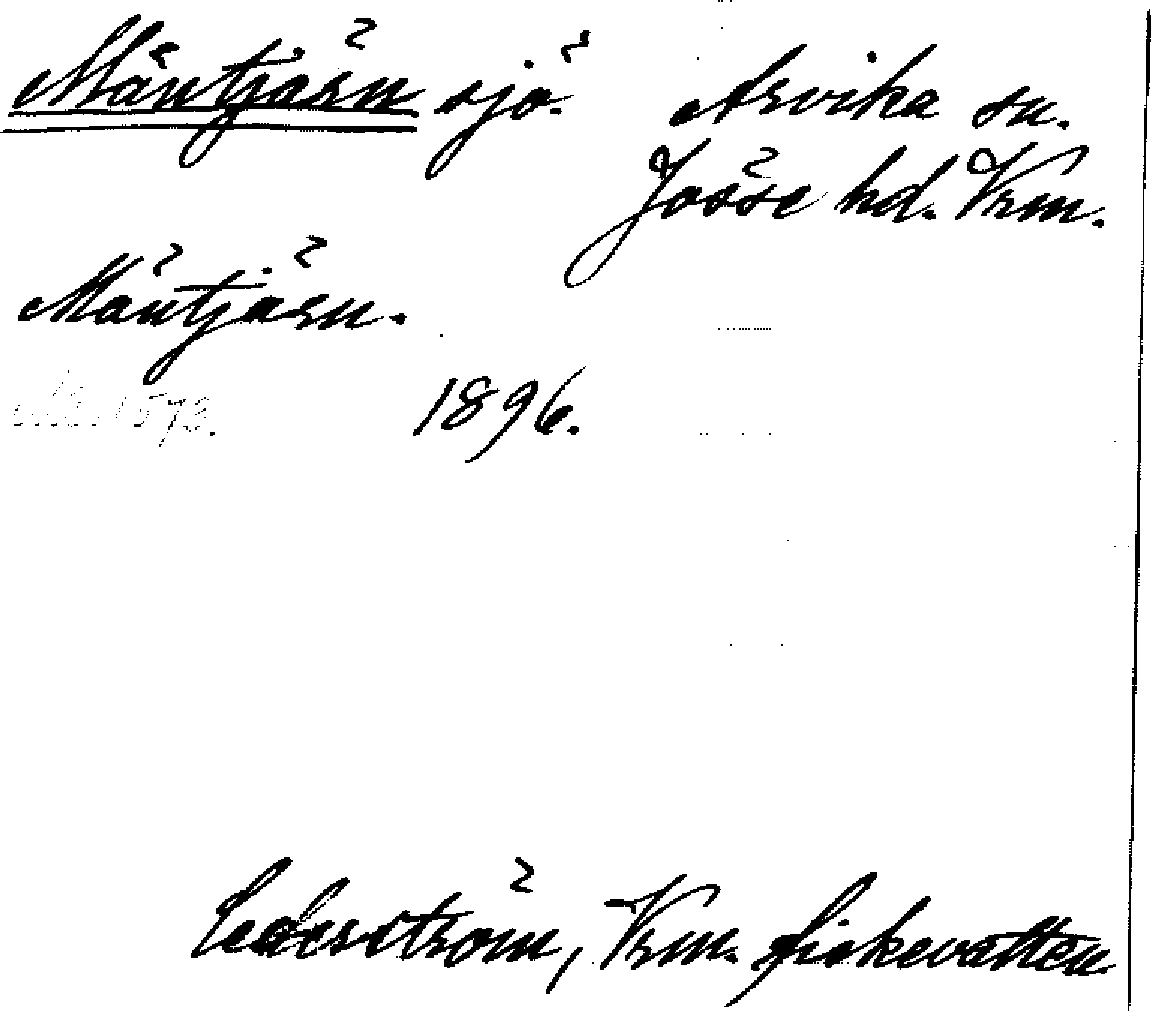 Mäntjärn sjö. Arvika sn.
Jösse hd. Vrm.
Mäntjärn.
1896.
Cederström, Vrm. fiskevatten